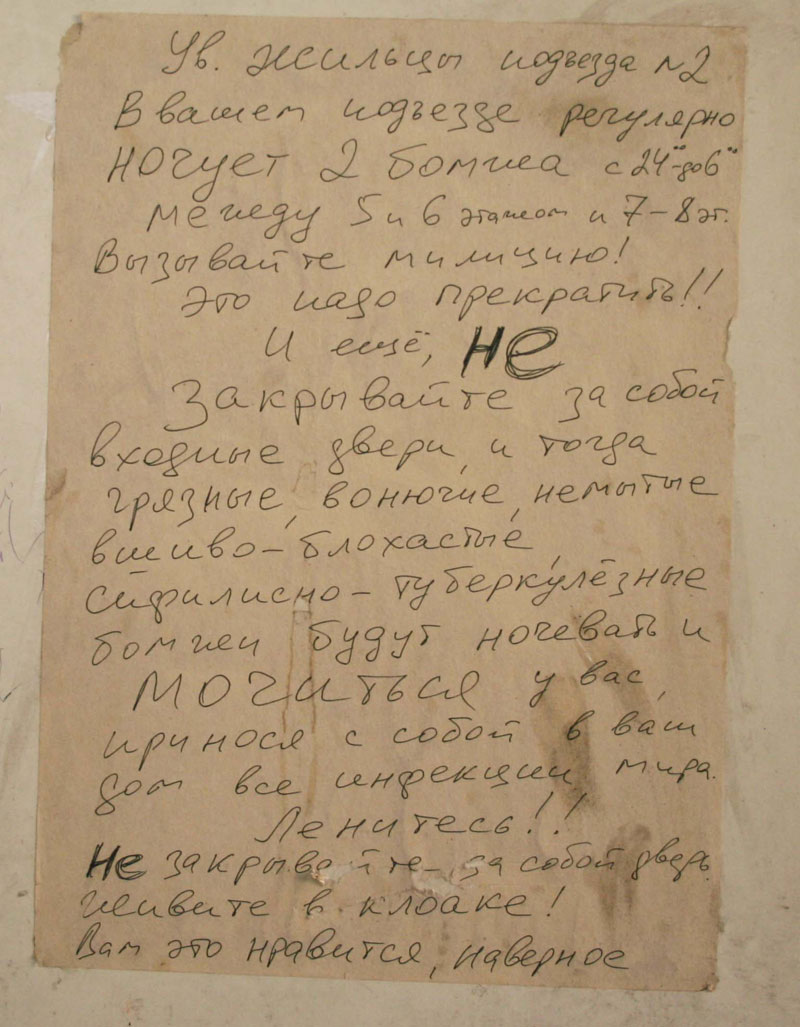 Ув. жильцы подъезда №2
В вашем подъезде регулярно
ночует 2 бомжа с 24°° до 6°°
между 5 и 6 этажом и 7-8 эт.
Вызывайте милицию!
Это надо прекратить!!
И ещё, НЕ
Закрывайте за собой
входные двери, и тогда
грязные, вонючие, немытые
вшиво-блохастые,
сифилисно-туберкулёзные
бомжи будут ночевать и
мочиться у вас,
принося с собой в ваш
дом все инфекции мира.
Ленитесь!!
Не закрывайте за собой дверь.
Живите в клоаке!
Вам это нравится, наверное